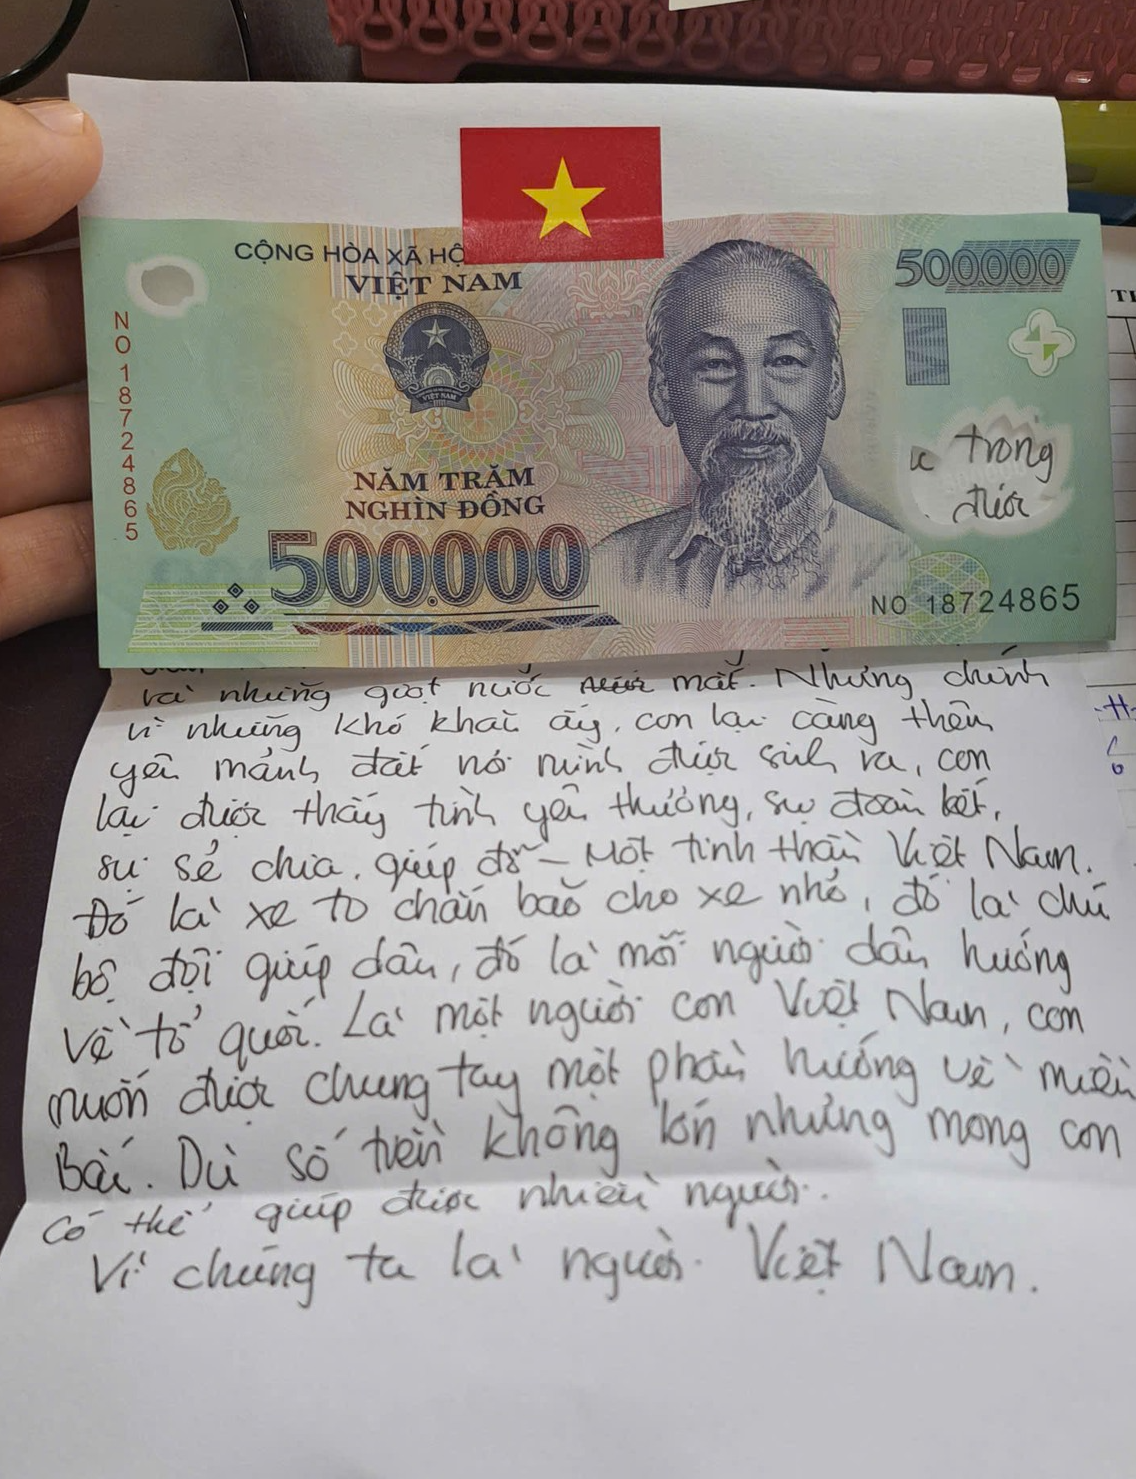 CỘNG HÒA XÃ HỘ
VIỆT NAM
500.000
NO 18724865
VIỆT NAM
NĂM TRĂM
NGHÌN ĐỒNG
500.000
trong
được
NO 18724865
và những giọt nước mắt. Nhưng chính
vì những khó khăn ấy, con lại càng thêm
yêu mảnh đất nơi mình được sinh ra, con
lại được thấy tình yêu thương, sự đoàn kết,
sự sẻ chia, giúp đỡ - Một tinh thần Việt Nam.
Đó là xe to chắn bão cho xe nhỏ, đó là chú
bộ đội giúp dân, đó là mỗi người dân hướng
về tổ quốc. Là một người con Việt Nam, con
muốn được chung tay một phần hướng về miền
Bắc. Dù số tiền không lớn nhưng mong con
có thể giúp được nhiều người.
Vì chúng ta là người Việt Nam.